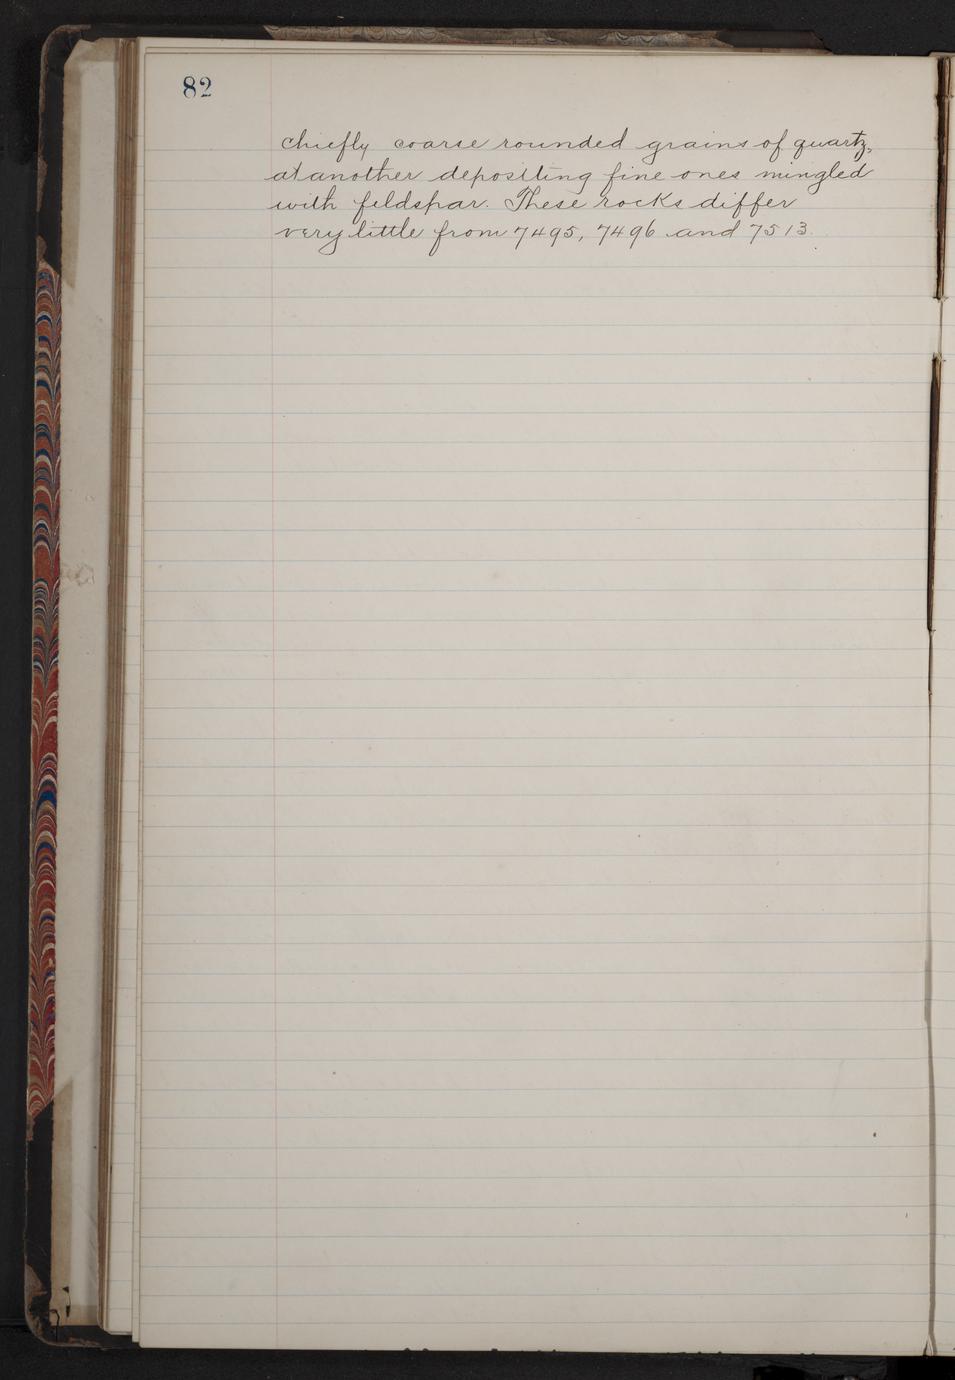 82
chiefly coarse rounded grains of quartz,
at another depositing fine ones mingled
with feldspar. These rocks differ
very little from 7495, 7496 and 7513.